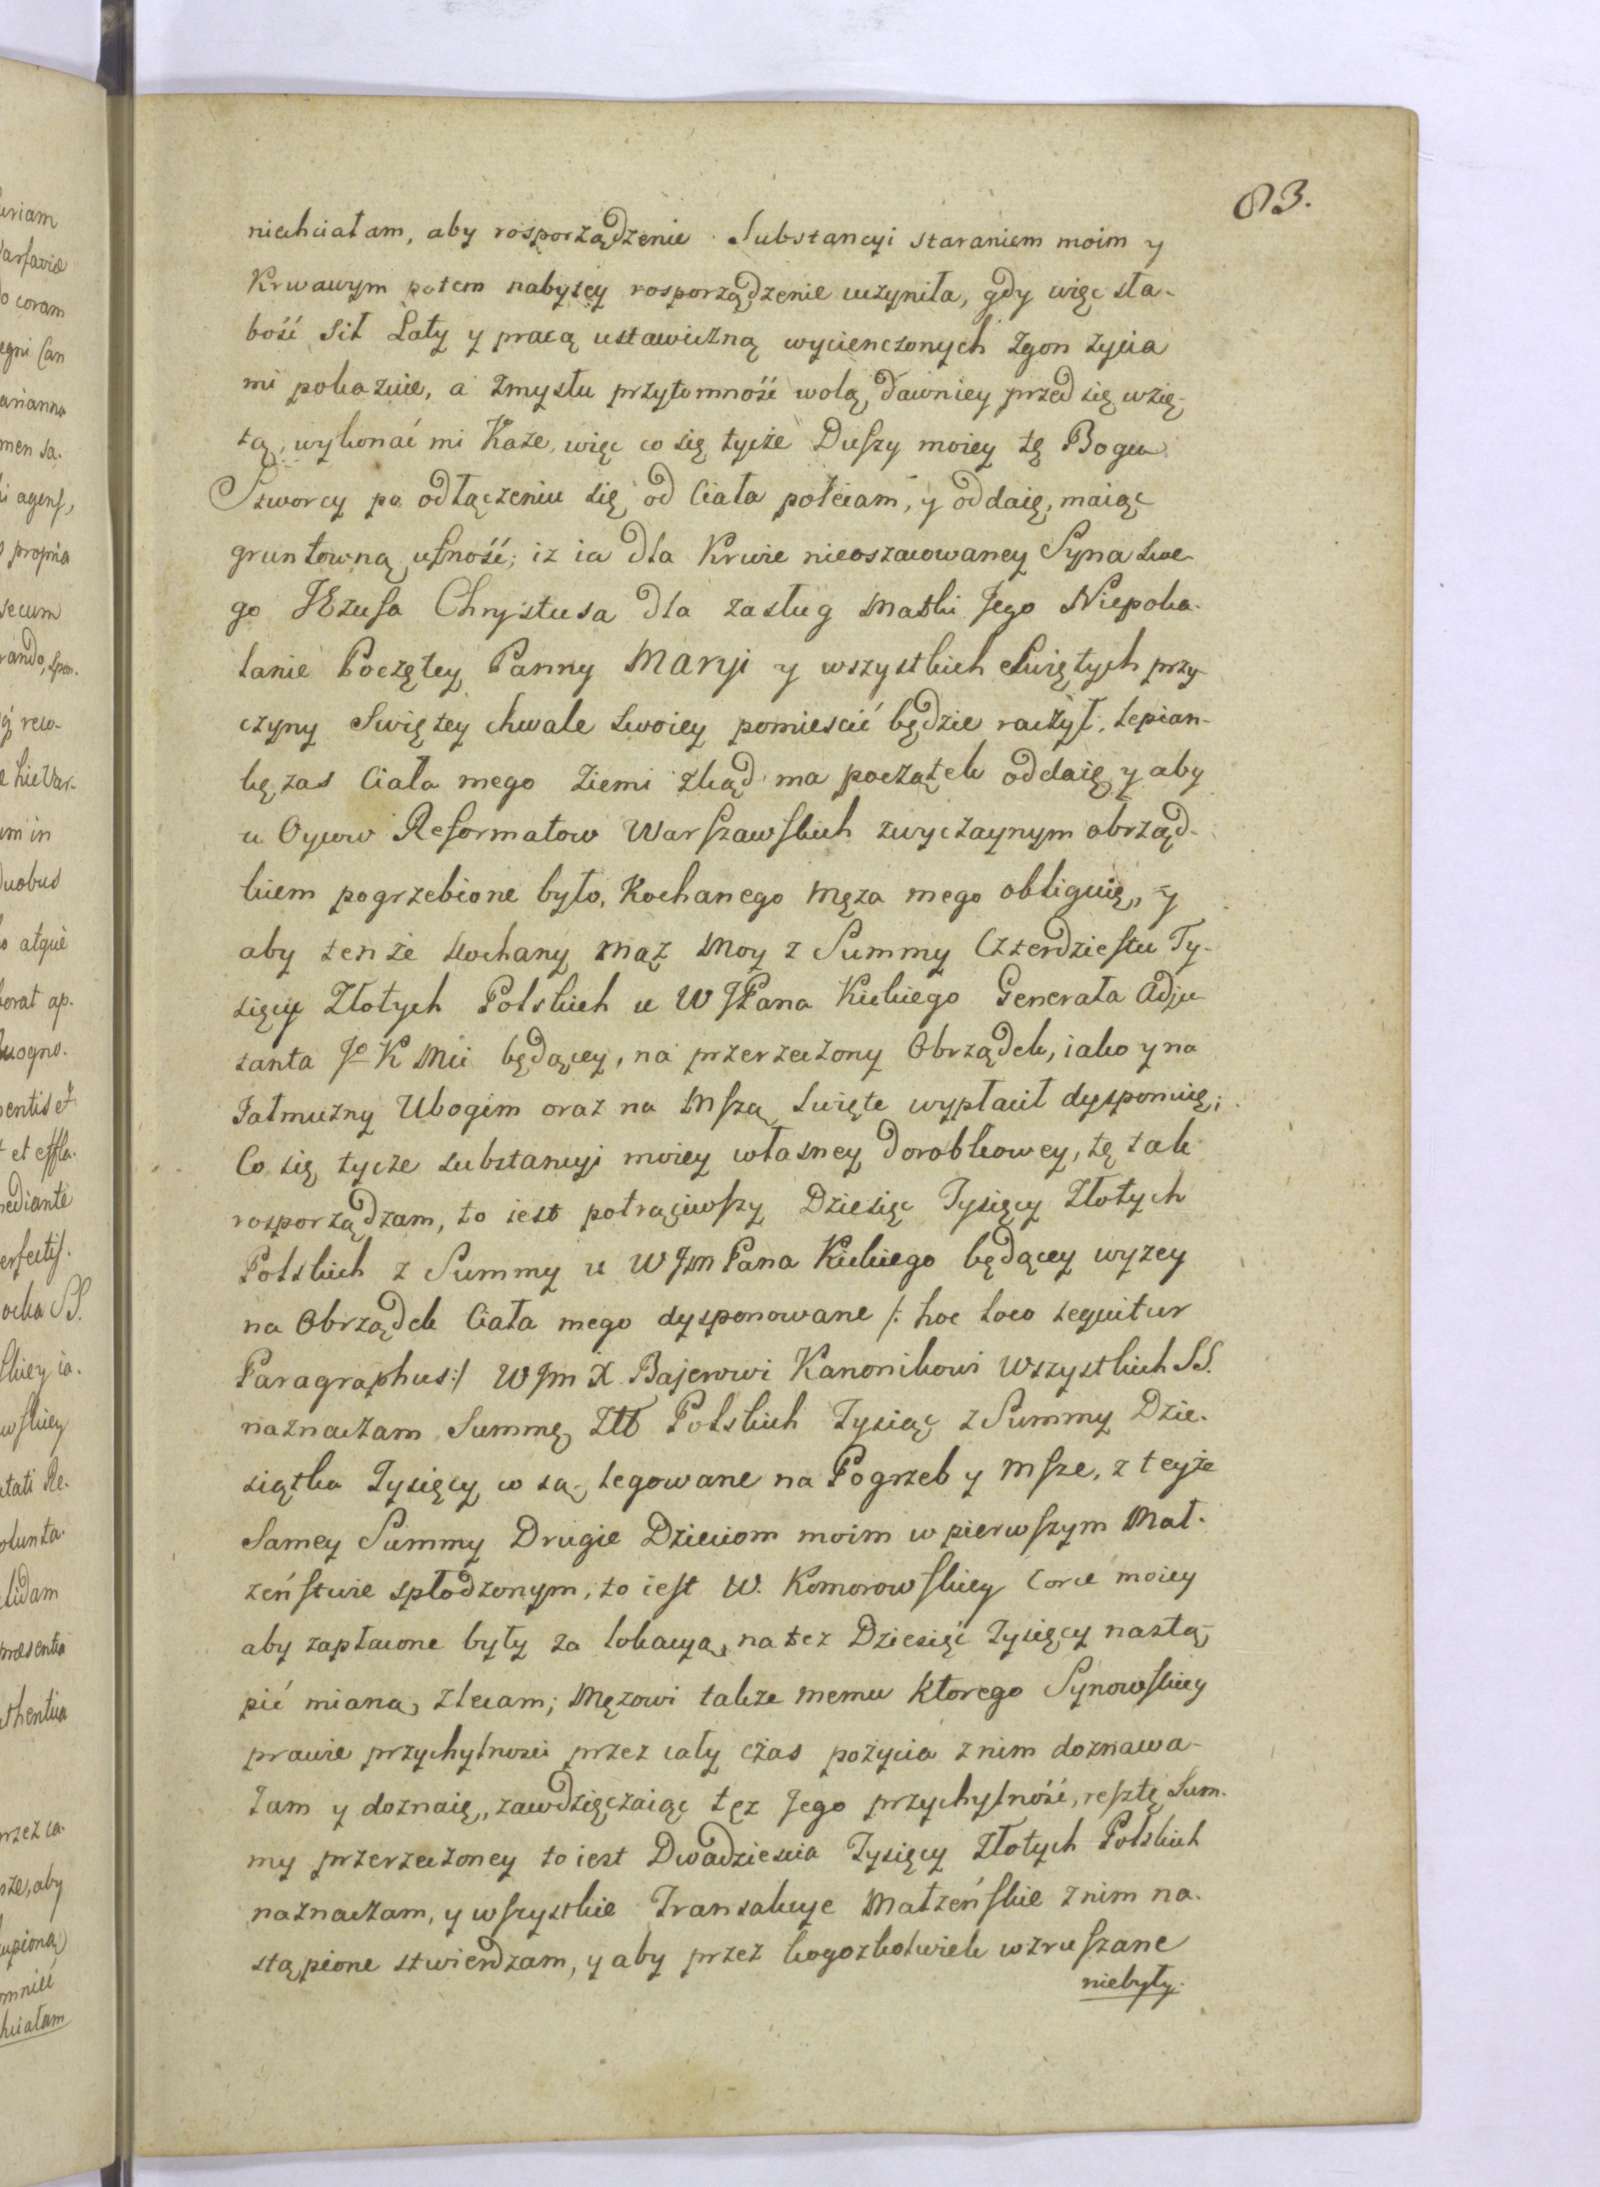 83.
niechciałam, aby rosporządzenie Substancyi staraniem moim y
Krwawym potem nabytey rosporządzenie uczyniła, gdy więc sła-
bość Sił Laty y pracą ustawiczną wycienczonych zgon zycia
mi pokazuie, a zmysłu przytomność wolą dawniey przed się wzię-
tą, wykonać mi Każe, więc co się tycże Duszy moiey tę Bogu
Stworcy po odłączeniu się od Ciała polecam, y oddaię, maiąc
gruntowną ufność, iz ia dla Krwie nieoszacowaney Syna Swe-
go JEzusa Chrystusa dla zasług Matki Jego Niepoka-
lanie Poczętey Panny Maryi y wszystkich Swiętych przy-
czyny Swiętey chwale Swoiey pomiescić będzie raczył, lepian-
kę zas Ciała mego Ziemi zkąd ma początek oddaię y aby
u Oycow Reformatow Warszawskich zwyczaynym obrząd-
kiem pogrzebione było, Kochanego Męza mego obliguię, y
aby tenże Kochany Mąż Moy z Summy Czterdziestu Ty-
sięcy Złotych Polskich u WJPana Kickiego Generała Adju
tanta Jo K Mci będącey, na przerzeczony Obrządek, iako y na
Jałmużny Ubogim oraz na Mszą Swięte wypłacił dysponuię;
Co się tycze substancyi moiey własney dorobkowey, tę tak
rosporządzam, to iest potrąciwszy Dziesięc Tysięcy Złotych
Polskich z Summy u WJm Pana Kickiego będącey wyzey
na Obrządek Ciała mego dysponowane /: hoc loco sequitur
Paragraphus:/ WJm X. Bajerowi Kanonikowi Wszystkich SS.
naznaczam Summę Złł Polskich Tysiąc z Summy Dzie-
siątka Tysięcy co są legowane na Pogrzeb y Msze, z teyże
Samey Summy Drugie Dzieciom moim w pierwszym Mał-
zeństwie spłodzonym, to iest W. Komorowskiey Corce moiey
aby zapłacone były za lokacyą na tez Dziesięć Tysięcy nastą-
pić mianą, zlecam; Męzowi takze memu Ktorego Synowskiey
prawie przychylnosci przez cały czas pożycia z nim doznawa-
łam y doznaię, zawdzięczaiąc tęz Jego przychylność, resztę Sum-
my przerzeczoney to iest Dwadziescia Tysięcy Złotych Polskich
naznaczam, y wszystkie Transakcye Małzeńskie z nim na-
stąpione stwierdzam, y aby przez kogozkolwiek wzruszane
niebyły.